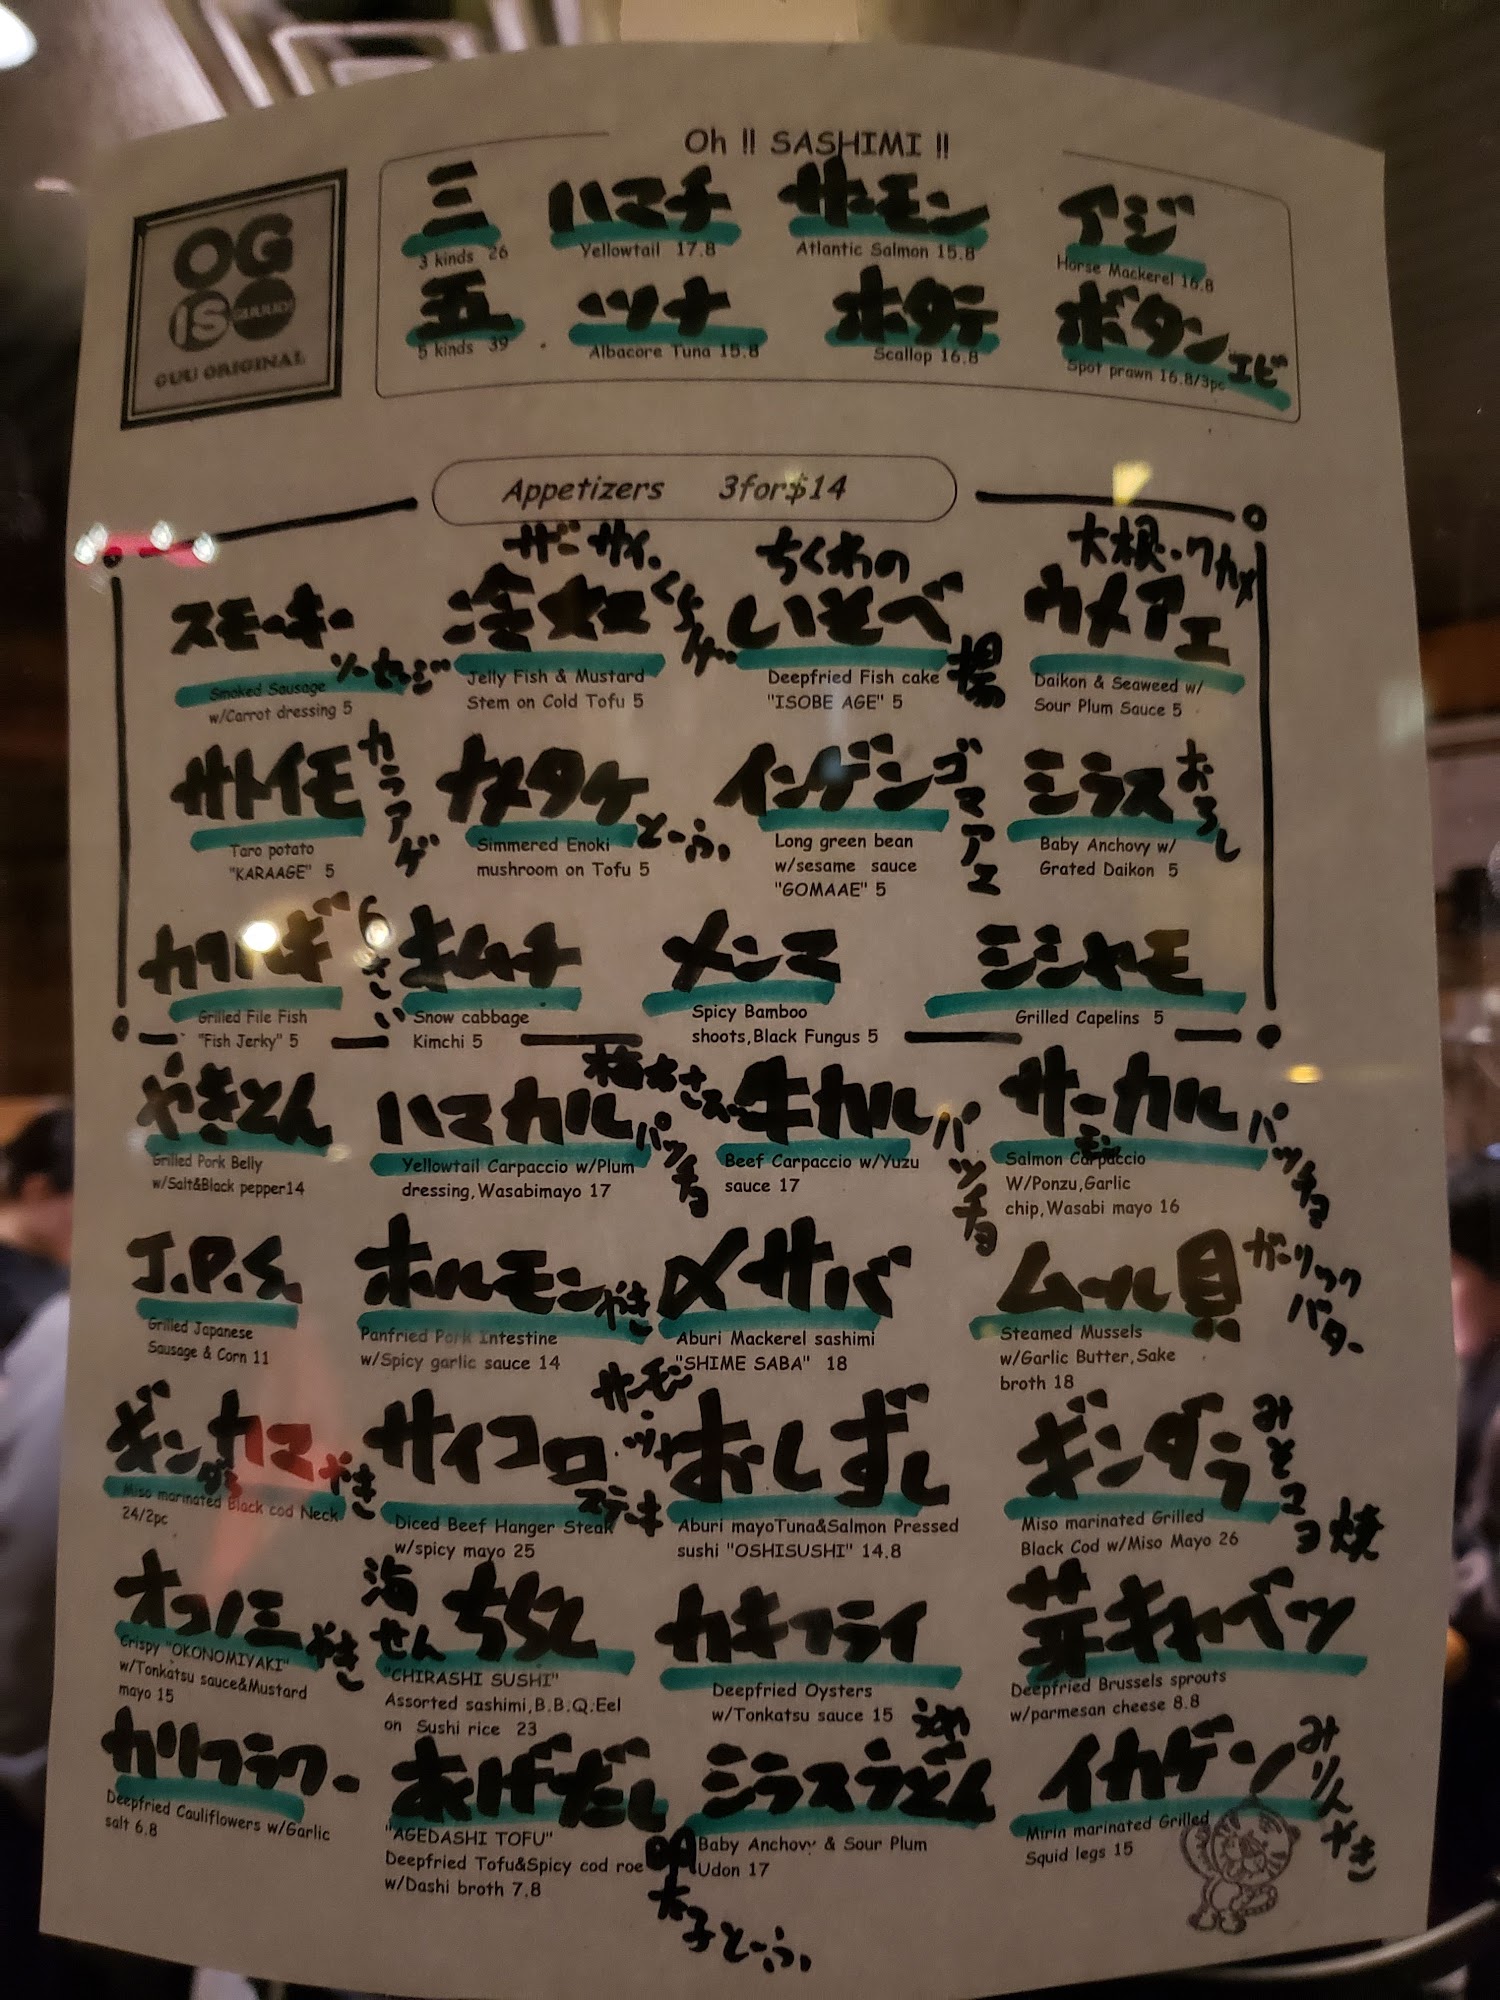 Oh !! SASHIMI !!
OG
IS
GUU ORIGINAL
三
3 kinds 26
ハマチ
Yellowtail 17.8
サーモン
Atlantic Salmon 15.8
アジ
Horse Mackerel 16.8
五
5 kinds 39
ツナ
Albacore Tuna 15.8
ホタテ
Scallop 16.8
ボタンエビ
Spot prawn 16.8/3pc
Appetizers 3for$14
スモーキー
ソーセージ
Smoked Sausage
w/Carrot dressing 5
ザーサイ。
くらげ
冷奴
Jelly Fish & Mustard
Stem on Cold Tofu 5
ちくわの
いそべ揚
Deepfried Fish cake
"ISOBE AGE" 5
大根・ワカメ
ウメアエ
Daikon & Seaweed w/
Sour Plum Sauce 5
サトイモ
カラアゲ
Taro potato
"KARAAGE" 5
ナメタケ
とーふ
Simmered Enoki
mushroom on Tofu 5
インゲン
ゴマアエ
Long green bean
w/sesame sauce
"GOMAAE" 5
シラス
おろし
Baby Anchovy w/
Grated Daikon 5
カワハギ
Grilled File Fish
"Fish Jerky" 5
キムチ
Snow cabbage
Kimchi 5
メンマ
Spicy Bamboo
shoots,Black Fungus 5
シシャモ
Grilled Capelins 5
やきとん
Grilled Pork Belly
w/Salt&Black pepper14
ハマカル
パッチョ
Yellowtail Carpaccio w/Plum
dressing,Wasabimayo 17
牛カル
パッチョ
Beef Carpaccio w/Yuzu
sauce 17
サーモン
カル
パッチョ
Salmon Carpaccio
W/Ponzu,Garlic
chip,Wasabi mayo 16
J.P.S.
Grilled Japanese
Sausage & Corn 11
ホルモン
やき
Panfried Pork Intestine
w/Spicy garlic sauce 14
〆サバ
Aburi Mackerel sashimi
"SHIME SABA" 18
ムール貝
ガーリック
バター
Steamed Mussels
w/Garlic Butter,Sake
broth 18
ギンダラ
カマ
やき
Miso marinated Black cod Neck
24/2pc
サイコロ
ステーキ
Diced Beef Hanger Steak
w/spicy mayo 25
サーモン
・ツナ
おしずし
Aburi mayoTuna&Salmon Pressed
sushi "OSHISUSHI" 14.8
ギンダラ
みそマヨ焼
Miso marinated Grilled
Black Cod w/Miso Mayo 26
オコノミ
やき
Crispy "OKONOMIYAKI"
w/Tonkatsu sauce&Mustard
mayo 15
海せん
ちらし
"CHIRASHI SUSHI"
Assorted sashimi,B.B.Q.Eel
on Sushi rice 23
カキフライ
Deepfried Oysters
w/Tonkatsu sauce 15
芽キャベツ
Deepfried Brussels sprouts
w/parmesan cheese 8.8
カリフラワー
Deepfried Cauliflowers w/Garlic
salt 6.8
あげだし
明太子とーふ
"AGEDASHI TOFU"
Deepfried Tofu&Spicy cod roe
w/Dashi broth 7.8
シラスうどん
Baby Anchovy & Sour Plum
Udon 17
イカゲソ
みりんやき
Mirin marinated Grilled
Squid legs 15